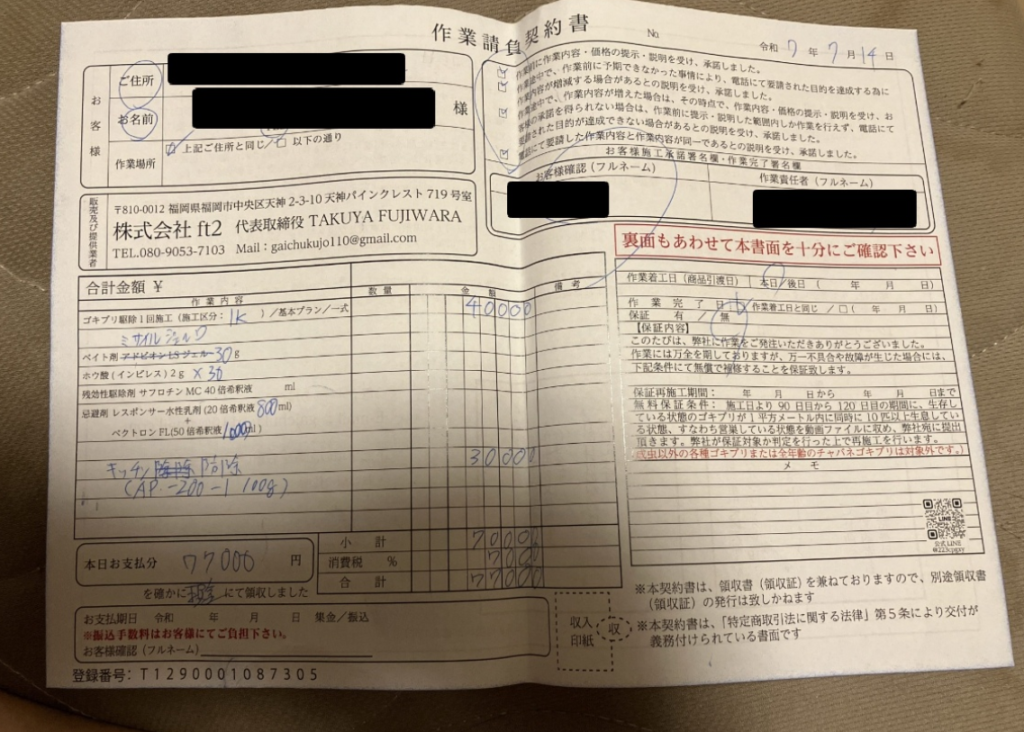 作業請負契約書
No.
令和 7 年 7 月 14 日
お客様
ご住所
お名前
様
作業場所
上記ご住所と同じ/□ 以下の通り
作業前に作業内容・価格の提示・説明を受け、承諾しました。
作業途中で、作業前に予期できなかった事情により、電話にて要請された目的を達成する為に
作業内容が増減する場合があるとの説明を受け、承諾しました。
作業途中で、作業内容が増えた場合は、その時点で、作業内容・価格の提示・説明を受け、お
客様の承諾を得られない場合は、作業前に提示・説明した範囲内しか作業を行えず、電話にて
要請された目的が達成できない場合があるとの説明を受け、承諾しました。
電話にて要請した作業内容と作業内容が同一であるとの説明を受け、承諾しました。
お客様施工承諾署名欄・作業完了署名欄
お客様確認(フルネーム)
作業責任者(フルネーム)
販売及び提供業者
〒810-0012 福岡県福岡市中央区天神 2-3-10 天神パインクレスト 719 号室
株式会社 ft2 代表取締役 TAKUYA FUJIWARA
TEL.080-9053-7103 Mail：gaichukujo110@gmail.com
裏面もあわせて本書面を十分にご確認下さい
合計金額 ¥
作業内容 数量 金額 備考
ゴキブリ駆除1回施工(施工区分：1K)/基本プラン/一式 40000
ミサイルジェルD
ベイト剤 アドビオンLSジェル 30g
ホウ酸(インピレス)2g ×30
残効性駆除剤 サフロチンMC 40倍希釈液 ml
忌避剤 レスポンサー水性乳剤(20倍希釈液 800ml)
+
ベクトロンFL(50倍希釈液 1000ml)
キッチン 防除 30000
(AP-200-1 100g)
小計 70000
消費税 % 7000
合計 77000
本日お支払分 77000 円
を確かに にて領収しました
お支払期日 令和 年 月 日 集金/振込
※振込手数料はお客様にてご負担下さい。
お客様確認(フルネーム)
登録番号：T1290001087305
作業着工日(商品引渡日) 本日/後日( 年 月 日)
作業完了日 作業着工日と同じ/□( 年 月 日)
保証 有/無
【保証内容】
このたびは、弊社に作業をご発注いただきありがとうございました。
作業には万全を期しておりますが、万一不具合や故障が生じた場合には、
下記条件にて無償で補修することを保証致します。
保証再施工期間： 年 月 日から 年 月 日まで
無料保証条件：施工日より90日目から120日目の期間に、生存し
ている状態のゴキブリが1平方メートル内に同時に10匹以上生息してい
る状態、すなわち営巣している状態を動画ファイルに収め、弊社宛に提出
頂きます。弊社が保証対象か判定を行った上で再施工を行います。
成虫以外の各種ゴキブリまたは全年齢のチャバネゴキブリは対象外です。)
メモ
LINE
公式LINE
@223cpgsy
収入印紙
収
※本契約書は、領収書(領収証)を兼ねておりますので、別途領収書
(領収証)の発行は致しかねます
※本契約書は、「特定商取引法に関する法律」第5条により交付が
義務付けられている書面です